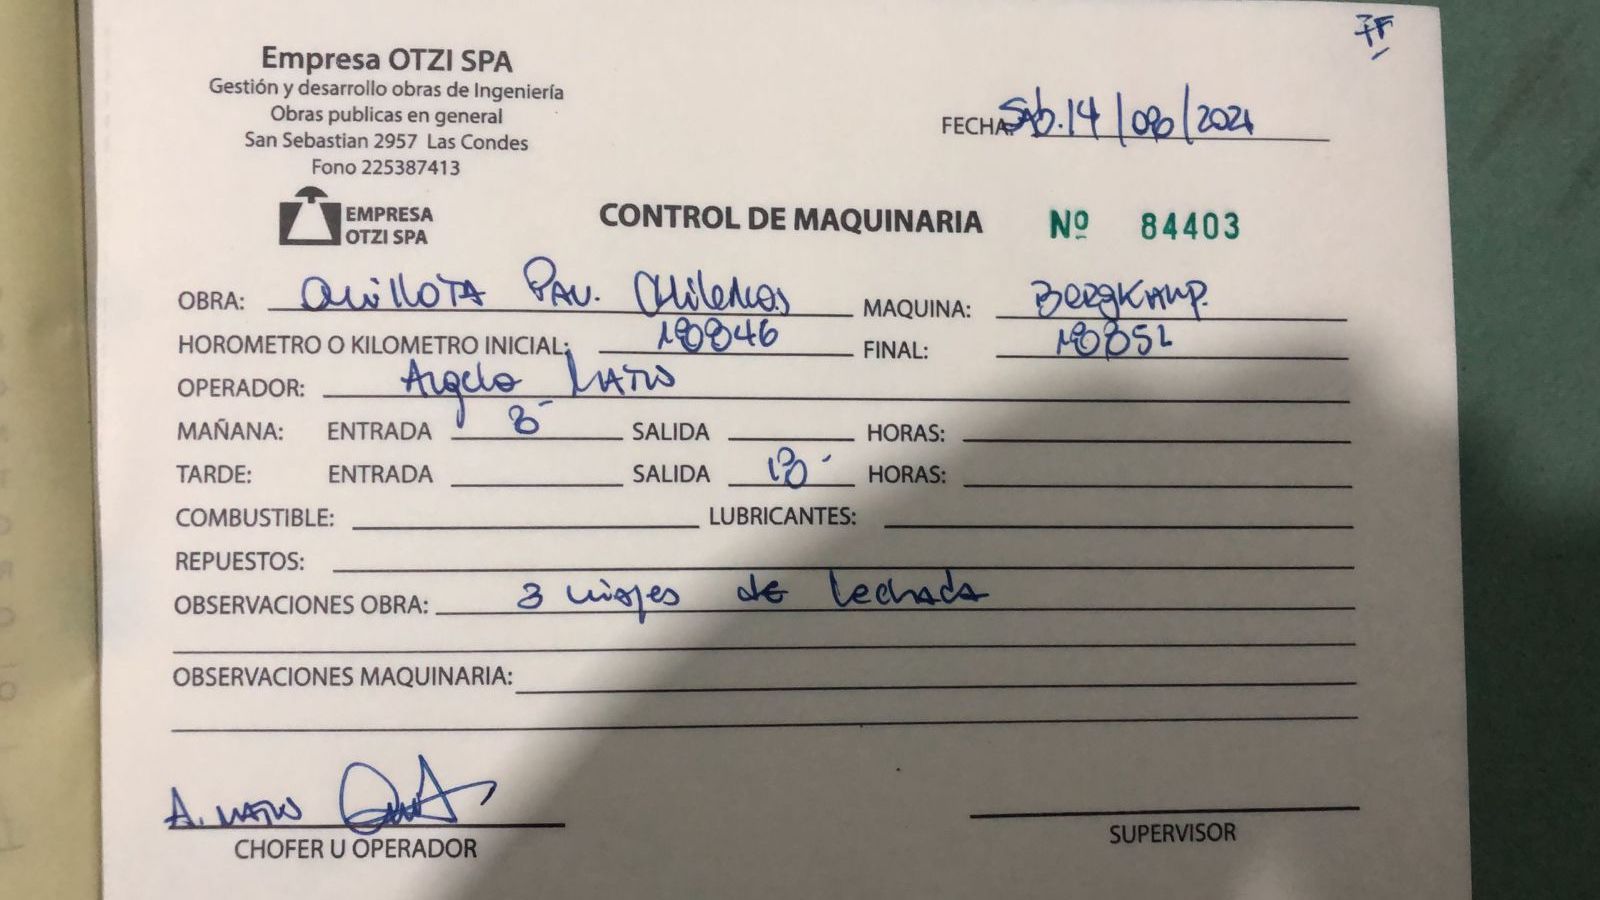 FF
Empresa OTZI SPA
Gestión y desarrollo obras de Ingeniería
Obras publicas en general
San Sebastian 2957 Las Condes
Fono 225387413
FECHA: Sab. 14/08/2021
EMPRESA
OTZI SPA
CONTROL DE MAQUINARIA Nº 84403
OBRA: Quillota Pav. Chilenos MAQUINA: Bergkamp.
HOROMETRO O KILOMETRO INICIAL: 18846 FINAL: 18852
OPERADOR: Angelo
MAÑANA: ENTRADA 8- SALIDA HORAS:
TARDE: ENTRADA SALIDA 18- HORAS:
COMBUSTIBLE: LUBRICANTES:
REPUESTOS:
OBSERVACIONES OBRA: 3 viajes de lechada
OBSERVACIONES MAQUINARIA:
A.
CHOFER U OPERADOR SUPERVISOR